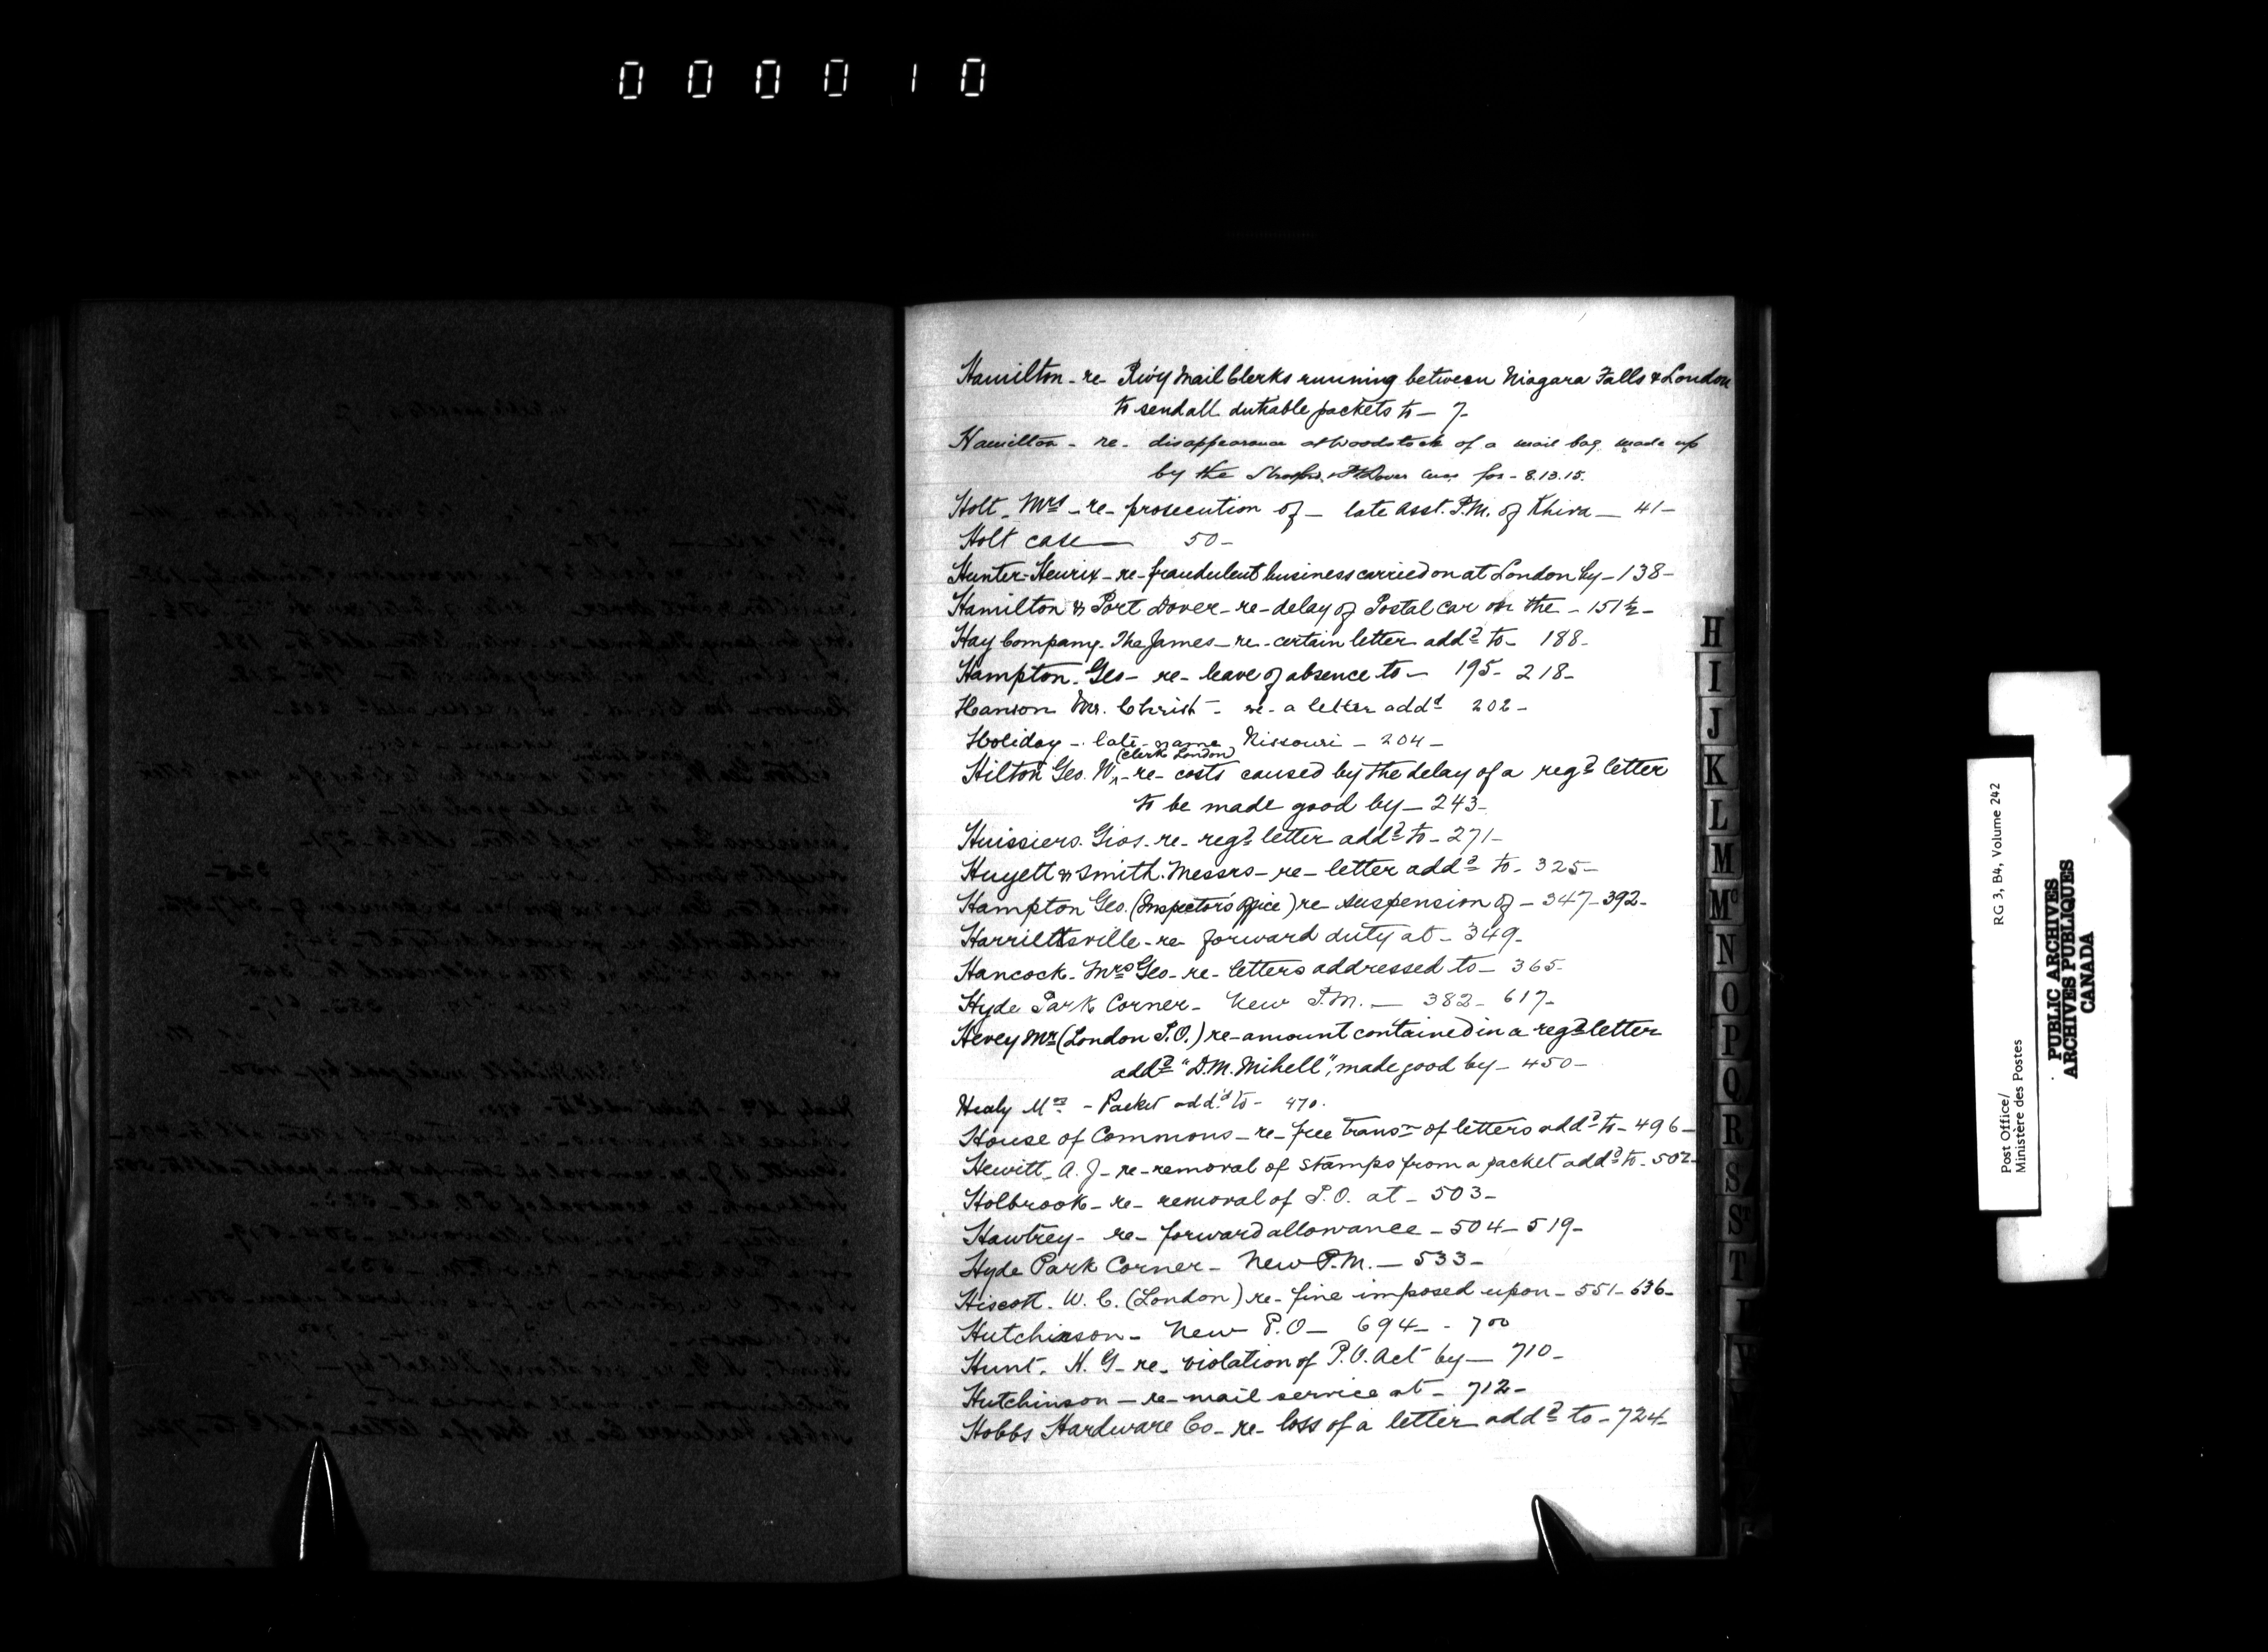 000010
Hamilton - re - Rwy Mail Clerks running between Niagara Falls & London
to send all dutiable packets to - 7 -
Hamilton - re - disappearance at Woodstock of a mail bag made up
by the & Pt Dover for - 8.13.15.
Holt - Mrs - re - prosecution of - late Asst. P.M. of Khiva - 41 -
Holt case - 50 -
Hunter-Henrix - re - fraudulent business carried on at London by - 138 -
Hamilton & Port Dover - re - delay of Postal Car on the - 151½ -
Hay Company. The James - re - certain letter addd to - 188 -
Hampton. Geo - re - leave of absence to - 195 - 218 -
Hanson Mr. Christ - re - a letter addd 202 -
Holiday - late name Nissouri - 204 -
(Clerk London)
Hilton Geo. W ^ - re - costs caused by the delay of a regd letter
to be made good by - 243 -
Huissiers. Gios. - re - regd letter addd to - 271 -
Huyett & Smith. Messrs - re - letter addd to - 325 -
Hampton Geo. (Inspector's Office) re suspension of - 347 - 392 -
Harriettsville - re - forward duty at - 349 -
Hancock. Mrs Geo - re - letters addressed to - 365 -
Hyde Park Corner - New P.M. - 382 - 617 -
Hevey Mr (London P.O.) re - amount contained in a regd letter
addd "D.M. Mihell", made good by - 450 -
Healy Mrs - Packet addd to - 470.
House of Commons - re - free transn of letters addd to - 496 -
Hewitt. A. J - re - removal of stamps from a packet addd to - 502 -
Holbrook - re - removal of P.O. at - 503 -
Hawtrey - re - forward allowance - 504 - 519 -
Hyde Park Corner - New P.M. - 533 -
Hiscott. W. C. (London) re - fine imposed upon - 551 - 636 -
Hutchinson - New P.O - 694 - - 700
Hunt. H. G - re - violation of P.O. Act by - 710 -
Hutchinson - re - mail service at - 712 -
Hobbs Hardware Co - re - loss of a letter addd to - 724 -
H
I
J
K
L
M
Mc
N
O
P
Q
R
S
St
T
Post Office/
Ministère des Postes
RG 3, B4, Volume 242
PUBLIC ARCHIVES
ARCHIVES PUBLIQUES
CANADA